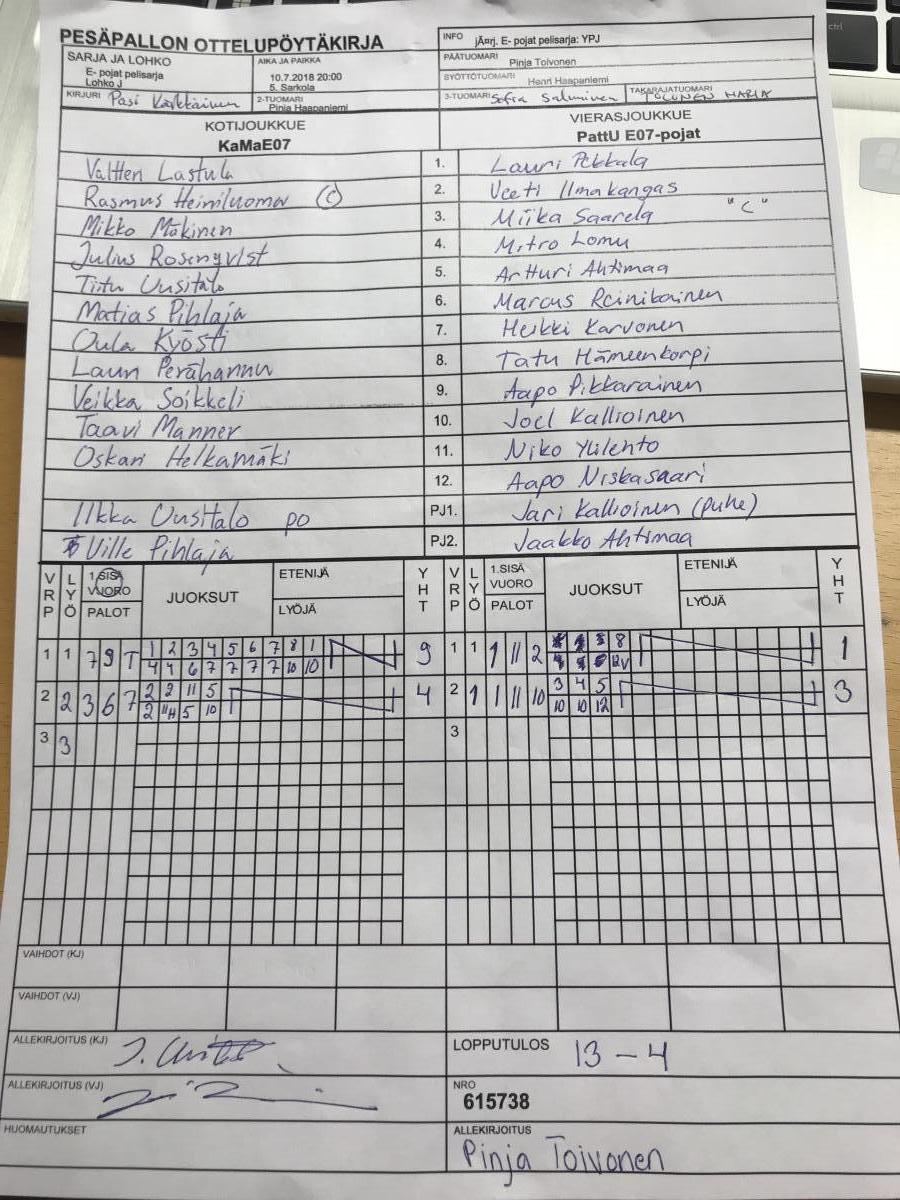 ctrl
PESÄPALLON OTTELUPÖYTÄKIRJA
INFO jÃ¤rj. E- pojat pelisarja: YPJ
SARJA JA LOHKO
E- pojat pelisarja
Lohko J
AIKA JA PAIKKA
10.7.2018 20:00
5. Sarkola
PÄÄTUOMARI Pinja Toivonen
SYÖTTÖTUOMARI Henri Haapaniemi
KIRJURI Pasi Kärkkäinen
2-TUOMARI Pinja Haapaniemi
3-TUOMARI Sofia Salminen
TAKARAJATUOMARI TOLONEN MARIA
KOTIJOUKKUE
KaMaE07
VIERASJOUKKUE
PattU E07-pojat
Valtteri Lastula 1. Lauri Pekkala
Rasmus Heiniluoma (C) 2. Veeti Ilmakangas
Mikko Mäkinen 3. Miika Saarela "C"
Julius Rosenqvist 4. Mitro Lomu
Tiitu Uusitalo 5. Artturi Ahtimaa
Matias Pihlaja 6. Marcus Reinikainen
Oula Kyösti 7. Heikki Karvonen
Lauri Perähannu 8. Tatu Hämeenkorpi
Veikka Soikkeli 9. Aapo Pikkarainen
Taavi Manner 10. Joel Kallioinen
Oskari Helkamäki 11. Niko Ylilehto
12. Aapo Niskasaari
Ilkka Uusitalo po PJ1. Jari Kallioinen (puhe)
Ville Pihlaja PJ2. Jaakko Ahtimaa
VRP LYÖ 1.SISÄ VUORO PALOT JUOKSUT ETENIJÄ LYÖJÄ YHT VRP LYÖ 1.SISÄ VUORO PALOT JUOKSUT ETENIJÄ LYÖJÄ YHT
1 1 7 9 T 1 2 3 4 5 6 7 8 1 9 1 1 1 11 2 8 1
4 4 6 7 7 7 7 10 10 12V
2 2 3 6 7 2 2 11 5 4 2 1 1 11 10 3 4 5 3
2 5 10 10 10 12
3 3 3
VAIHDOT (KJ)
VAIHDOT (VJ)
ALLEKIRJOITUS (KJ)
LOPPUTULOS 13 - 4
ALLEKIRJOITUS (VJ)
NRO
615738
HUOMAUTUKSET
ALLEKIRJOITUS
Pinja Toivonen